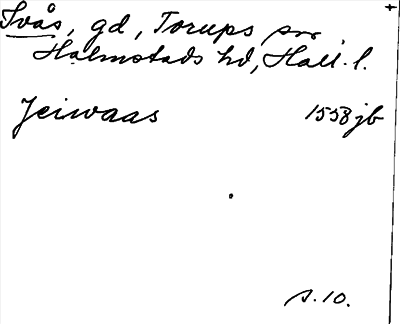 Ivås, gd, Torups sn,
Halmstads hd, Hall. l.
Jeiwaas 1558 jb
s. 10.